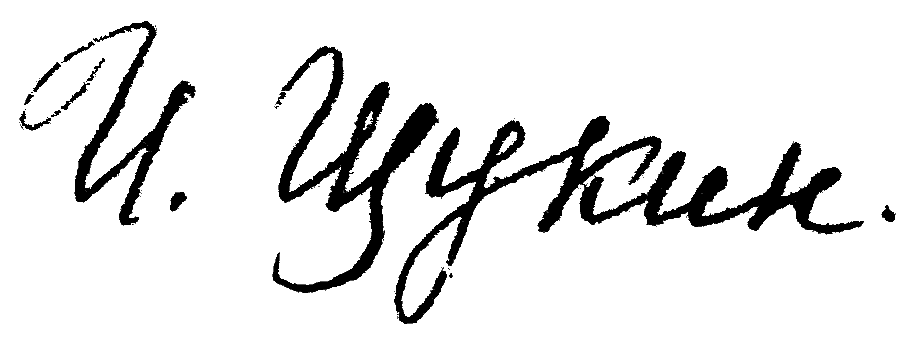 И. Щукин.